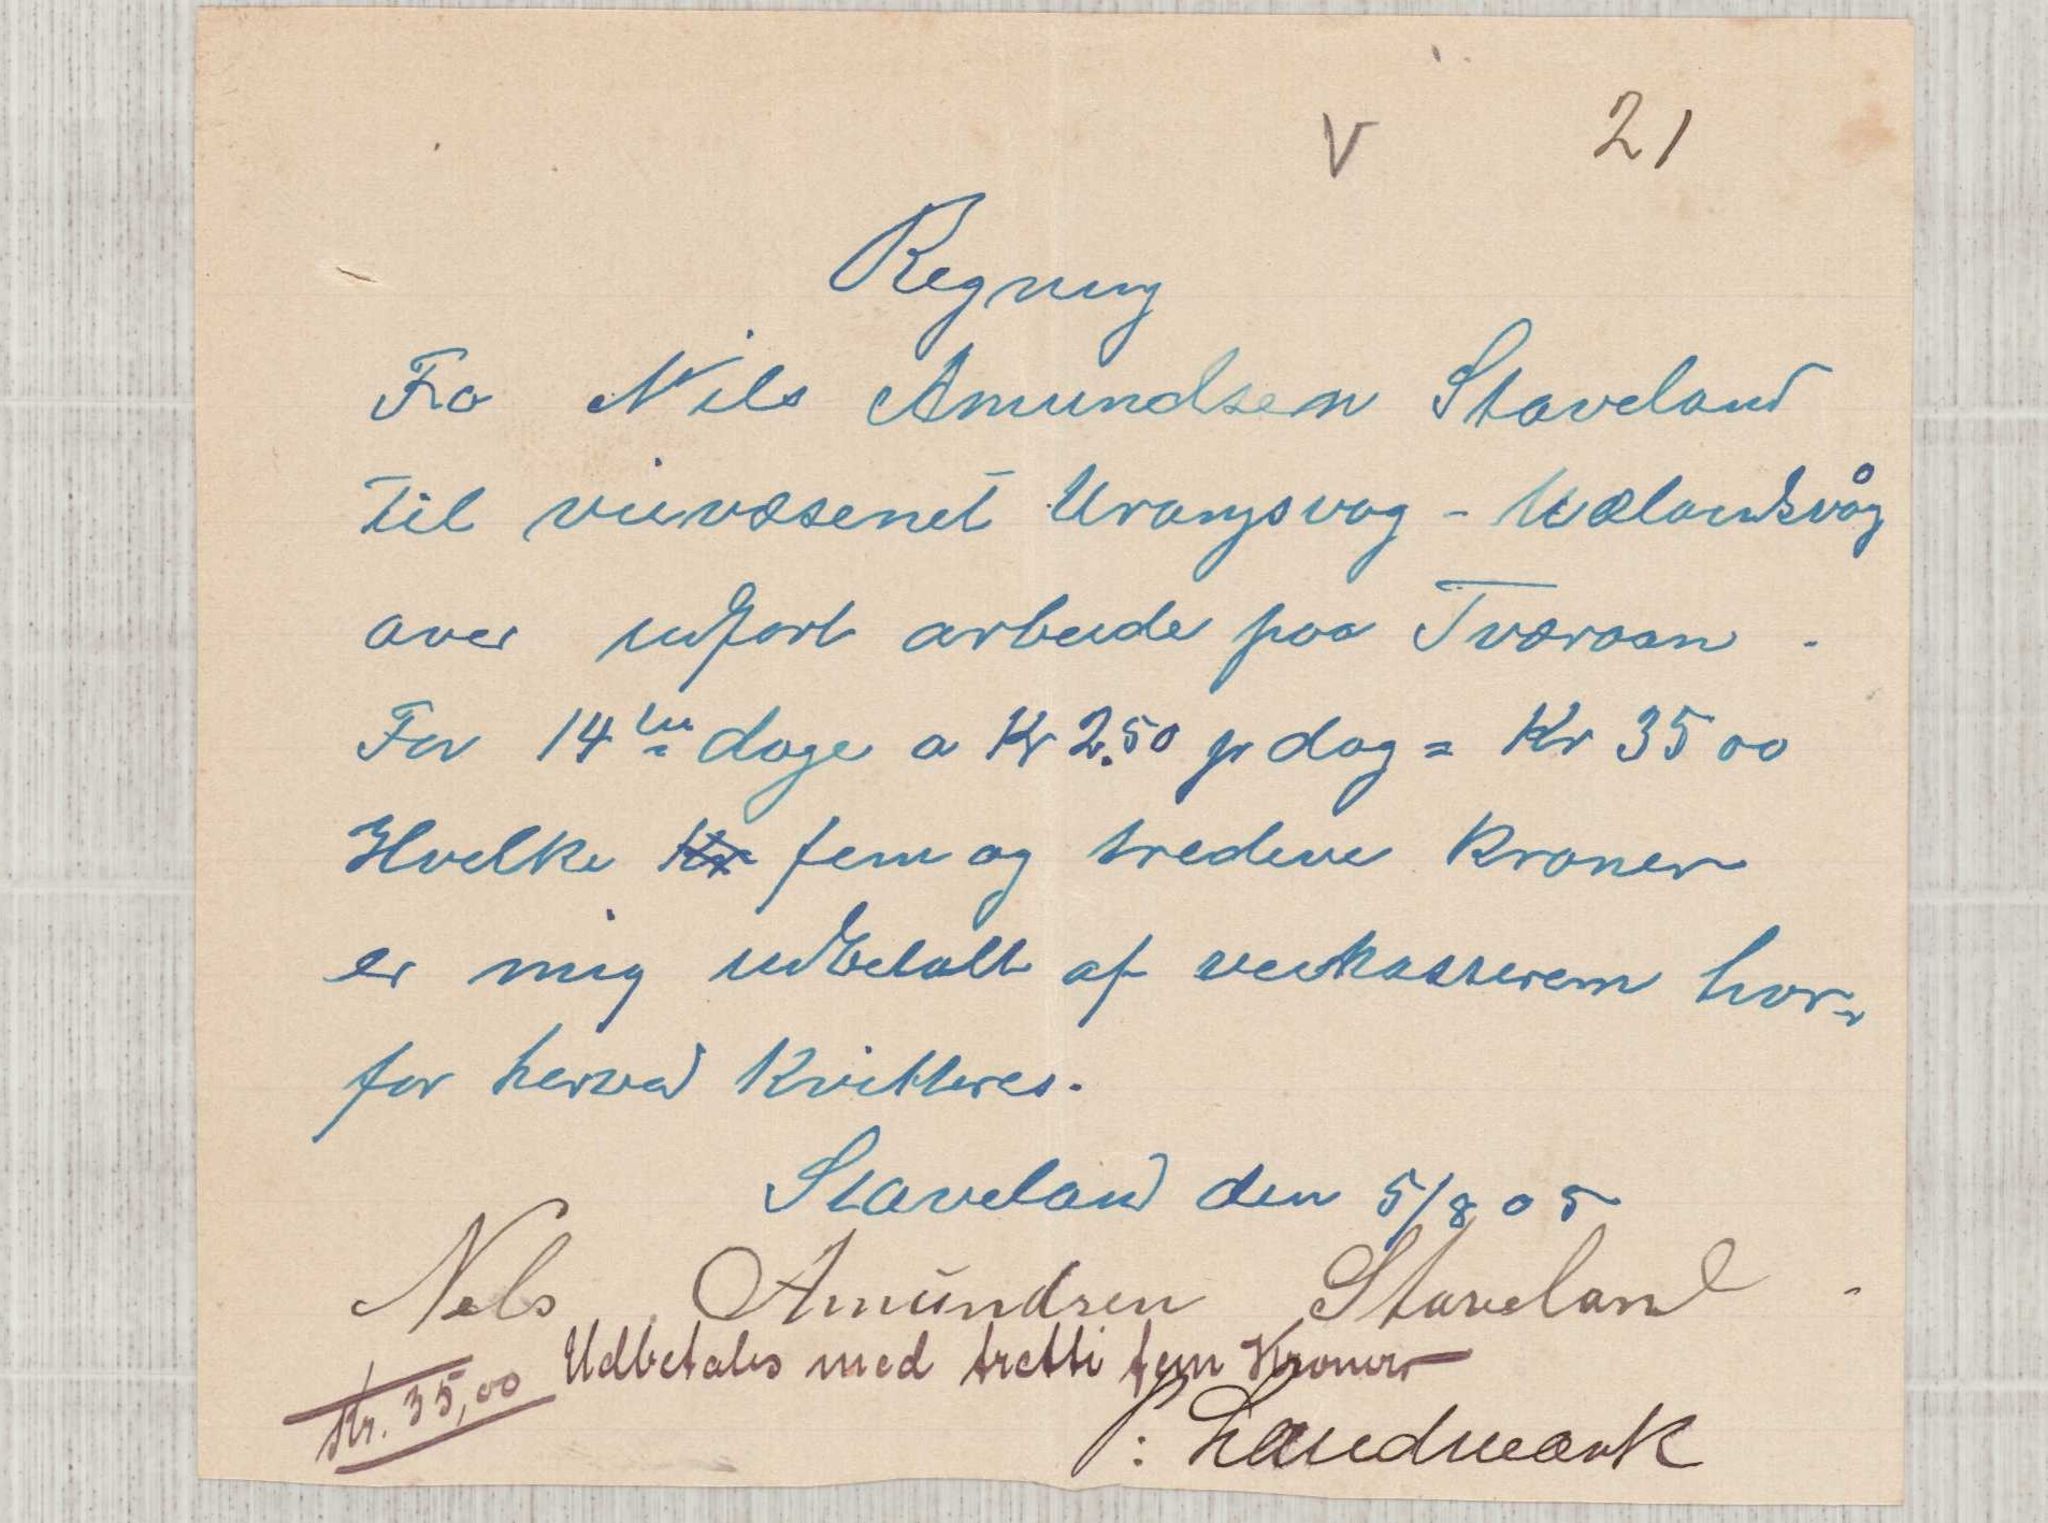 V 21
Regning
Fra Nils Amundsen Staveland
til veivæsenet Urangsvag - Udlandsvåg
over udfort arbeide paa Tværaan.
For 14 dage a Kr 2.50 pr dag = Kr 35 00
Hvelke Kr fem og tredeve Kroner
er mig udbetalt af veikasseren hvor-
for herved Kvitteres.
Staveland den 5/8 05
Nels Amundsen Staveland.
Udbetales med tretti fem Kroner
Kr. 35,00
P: Landmark